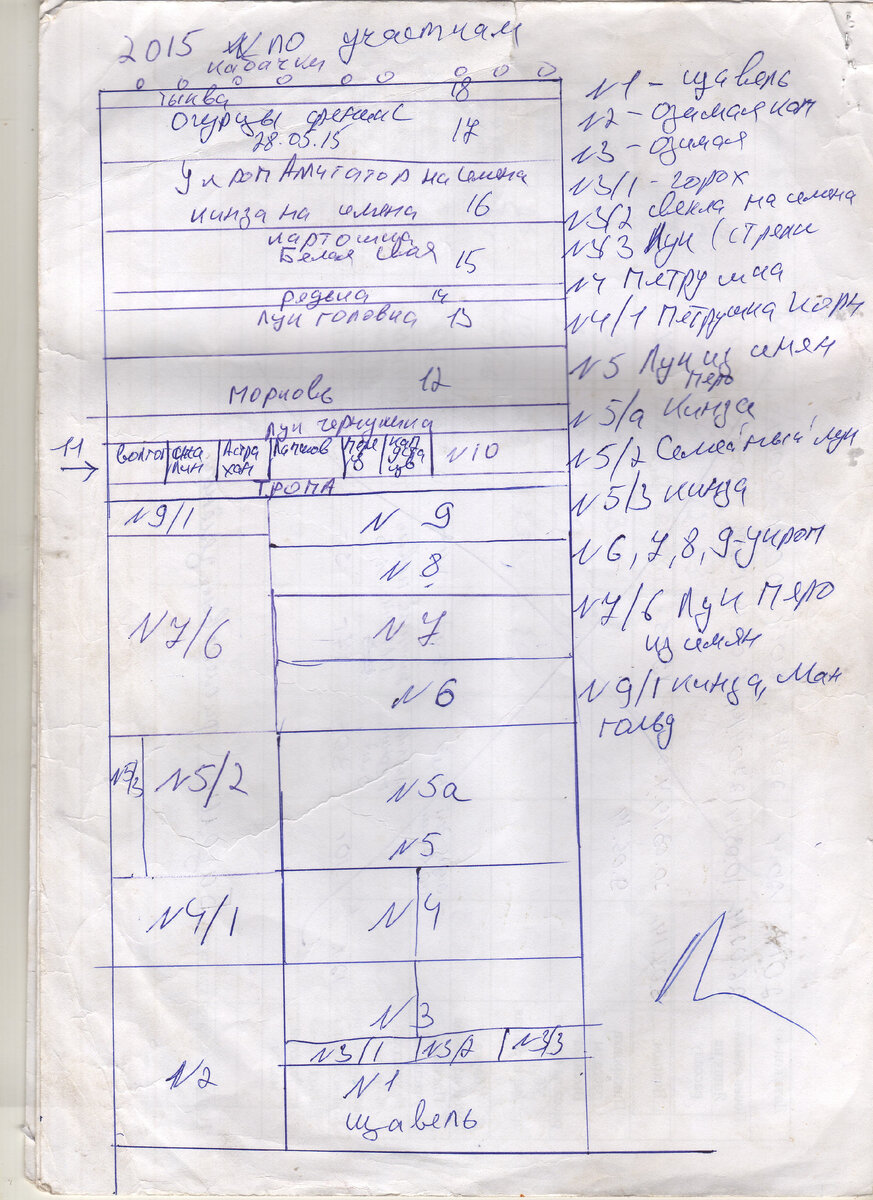 2015 N по участкам
кабачки
тыква 18
Огурцы феникс
28.05.15 17
Укроп Амигатор на семена
кинза на семена 16
картошка
Белая 15
редька 14
Лук головка 13
Морковь 12
Лук чернушка
11
Волгог
Астра
хан
N10
ТРОПА
N9/1
N 9
N 8
N 7/6
N 7
N 6
N5/3
N5/2
N5а
N5
N4/1
N4
N3
N3/1 N3/2 N3/3
N2
N1
щавель
N1 - щавель
N2 - озимая кап
N3 - озимая
N3/1 - горох
N3/2 свекла на семена
N3/3 Лук (стрелки
N4 Петрушка
N4/1 Петрушка корн
N5 Лук из симян
перо
N5/а Кинза
N5/2 Семейный лук
N5/3 Кинза
N6, 7, 8, 9-укроп
N7/6 Лук перо
из симян
N9/1 кинза, Ман
гольд